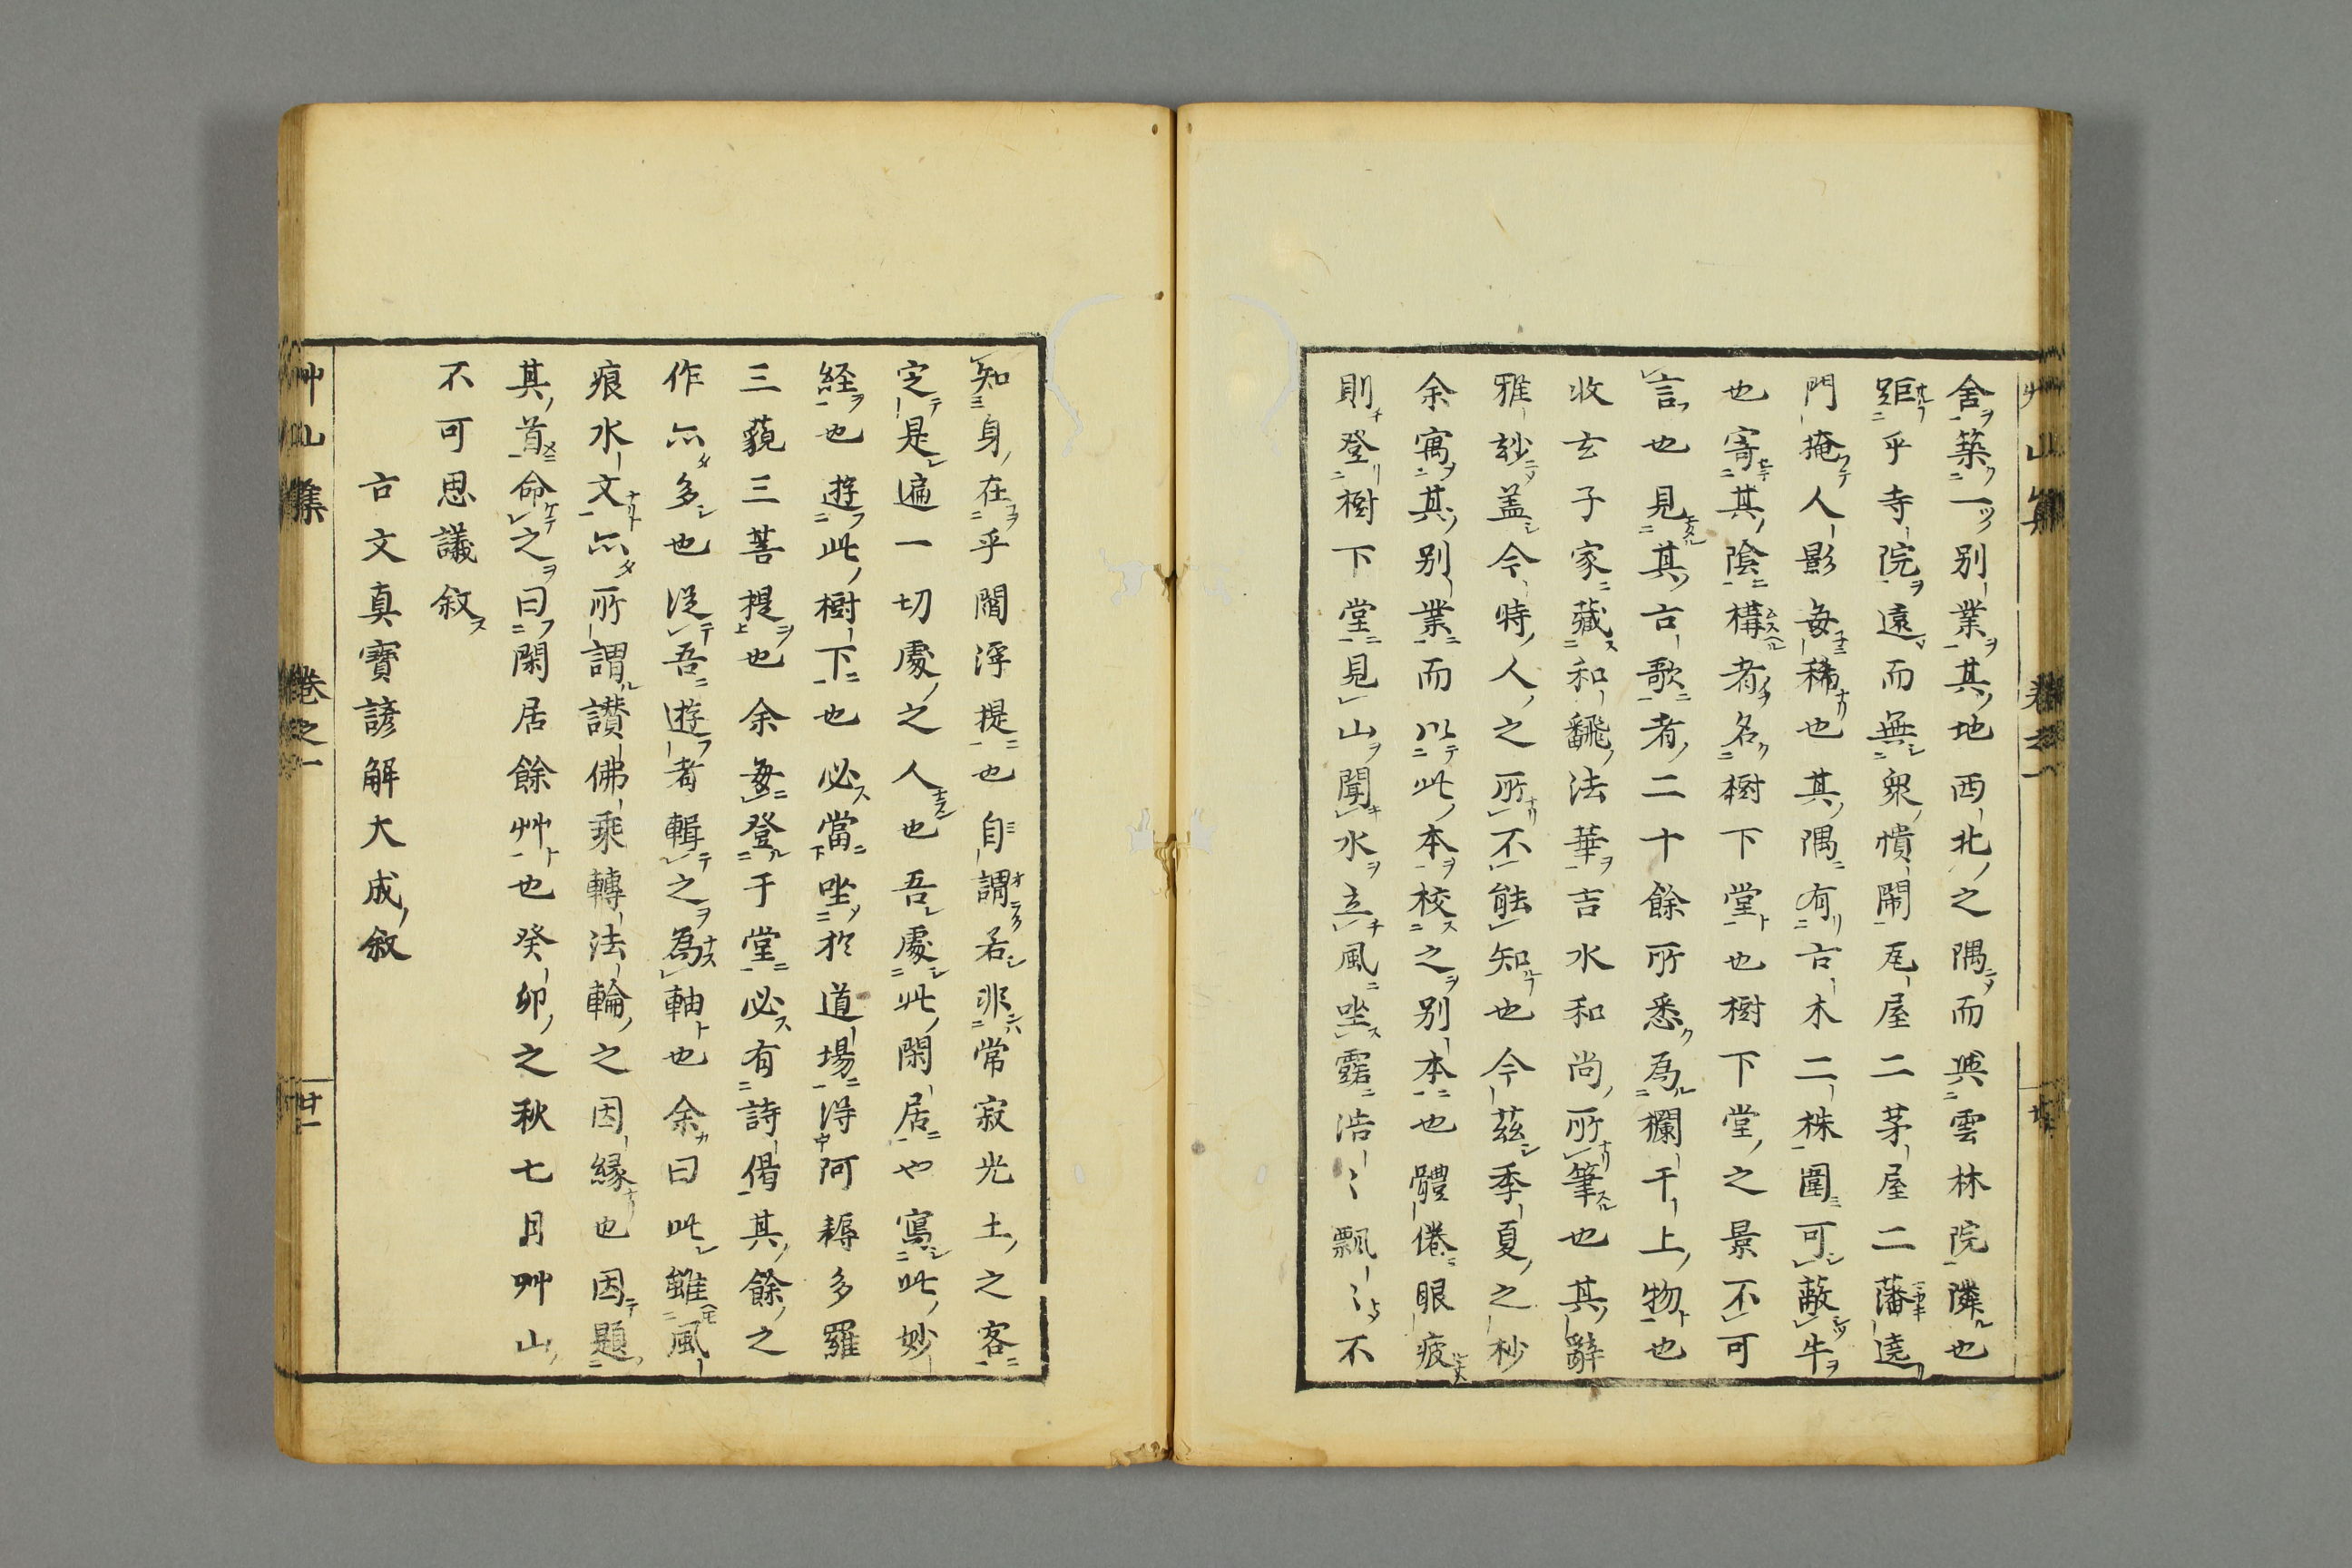 舍築一別業其地西北之隅而與雲林院隣也
距乎寺院遠而無衆憒閙瓦屋二茅屋二藩遶
門掩人影每稀也其隅有古木二株圍可蔽牛
也寄其陰構者名樹下堂也樹下堂之景不可
言也見其古歌者二十餘所悉為欄干上物也
收玄子家藏和飜法華吉水和尚所筆也其辭
雅玅盖今時人之所不能知也今茲季夏之杪
余寓其別業而以此本校之別本也體倦眼疲
則登樹下堂見山聞水立風坐霑浩〻飄〻不
知身在乎閻浮提也自謂若非常寂光土之客
定是遍一切處之人也吾處此閑居也寫此妙
経也遊此樹下也必當坐於道場得阿耨多羅
三藐三菩提也余每登于堂必有詩偈其餘之
作亦多也従吾遊者輯之為軸也余曰此雖風
痕水文亦所謂讃佛乘轉法輪之因縁也因題
其首命之曰閑居餘艸也癸卯之秋七月艸山
不可思議叙
古文真寶諺解大成叙
艸山集
卷之一
廿一